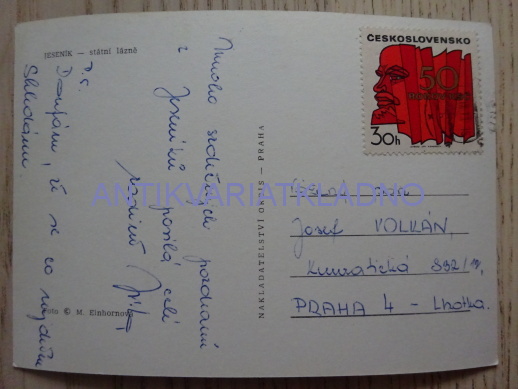 JESENÍK — státní lázně
Mnoho srdečných pozdravů
z Jeseníku posílá celé
rodině Jiř
P.S.
Doufám, že se co nejdříve
Shledáme
Foto © M. Einhornová
NAKLADATELSTVÍ ORBIS — PRAHA
ČESKOSLOVENSKO
50
30h
Josef VOLKÁN,
Kunratická 892/
PRAHA 4 - Lhotka.
ANTIKVARIATKLADNO